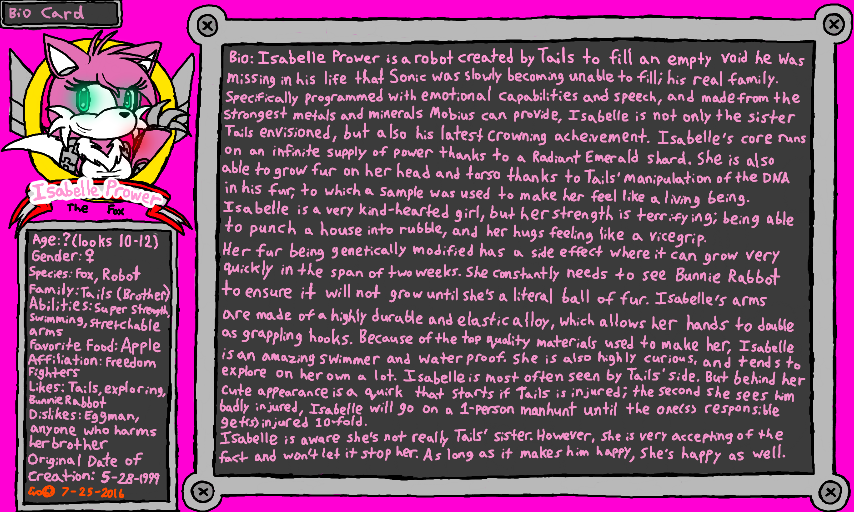 Bio Card
Isabelle Prower
The Fox
Age:?(looks 10-12)
Gender:♀
Species: Fox, Robot
Family:Tails (Brother)
Abilities: Super Strength
Swimming, Stretchable
arms
Favorite Food: Apple
Affiliation: Freedom
Fighters
Likes: Tails, exploring,
Bunnie Rabbot
Dislikes: Eggman,
anyone who harms
her brother
Original Date of
Creation: 5-28-1999
7-25-2016
Bio: Isabelle Prower is a robot created by Tails to fill an empty void he was
missing in his life that Sonic was slowly becoming unable to fill; his real family.
Specifically programmed with emotional capabilities and speech, and made from the
strongest metals and minerals Mobius can provide, Isabelle is not only the sister
Tails envisioned, but also his latest crowning acheivement. Isabelle's core runs
on an infinite supply of power thanks to a Radiant Emerald shard. She is also
able to grow fur on her head and torso thanks to Tails' manipulation of the DNA
in his fur, to which a sample was used to make her feel like a living being.
Isabelle is a very kind-hearted girl, but her strength is terrifying; being able
to punch a house into rubble, and her hugs feeling like a vicegrip.
Her fur being genetically modified has a side effect where it can grow very
quickly in the span of two weeks. She constantly needs to see Bunnie Rabbot
to ensure it will not grow until she's a literal ball of fur. Isabelle's arms
are made of a highly durable and elastic alloy, which allows her hands to double
as grappling hooks. Because of the top quality materials used to make her, Isabelle
is an amazing swimmer and water proof. She is also highly curious, and tends to
explore on her own a lot. Isabelle is most often seen by Tails' side. But behind her
cute appearance is a quirk that starts if Tails is injured; the second she sees him
badly injured, Isabelle will go on a 1-person manhunt until the one(s) responsible
get(s) injured 10-fold.
Isabelle is aware she's not really Tails' sister. However, she is very accepting of the
fact and won't let it stop her. As long as it makes him happy, she's happy as well.